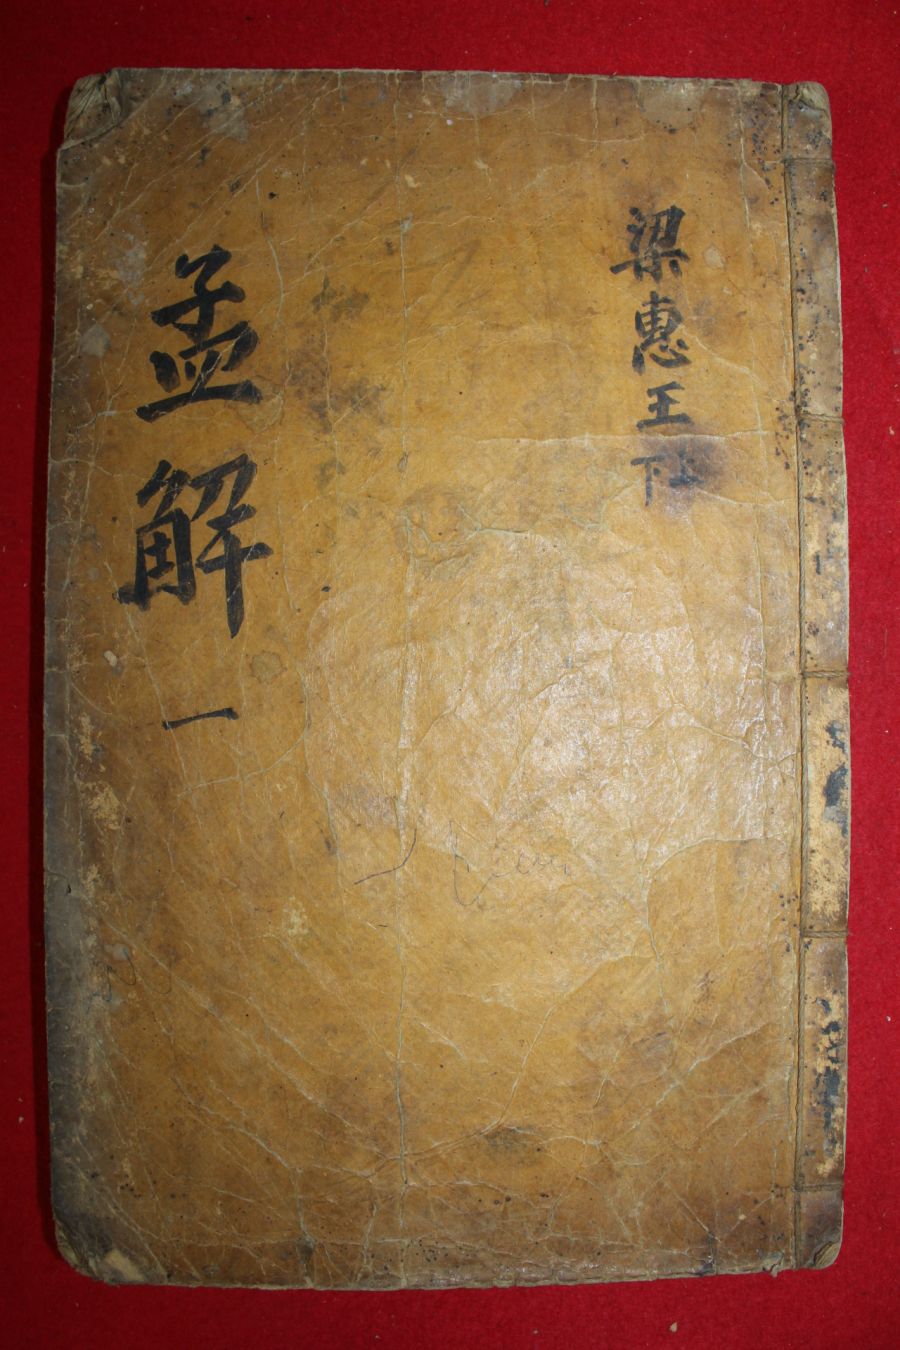 梁惠王上下
孟解一